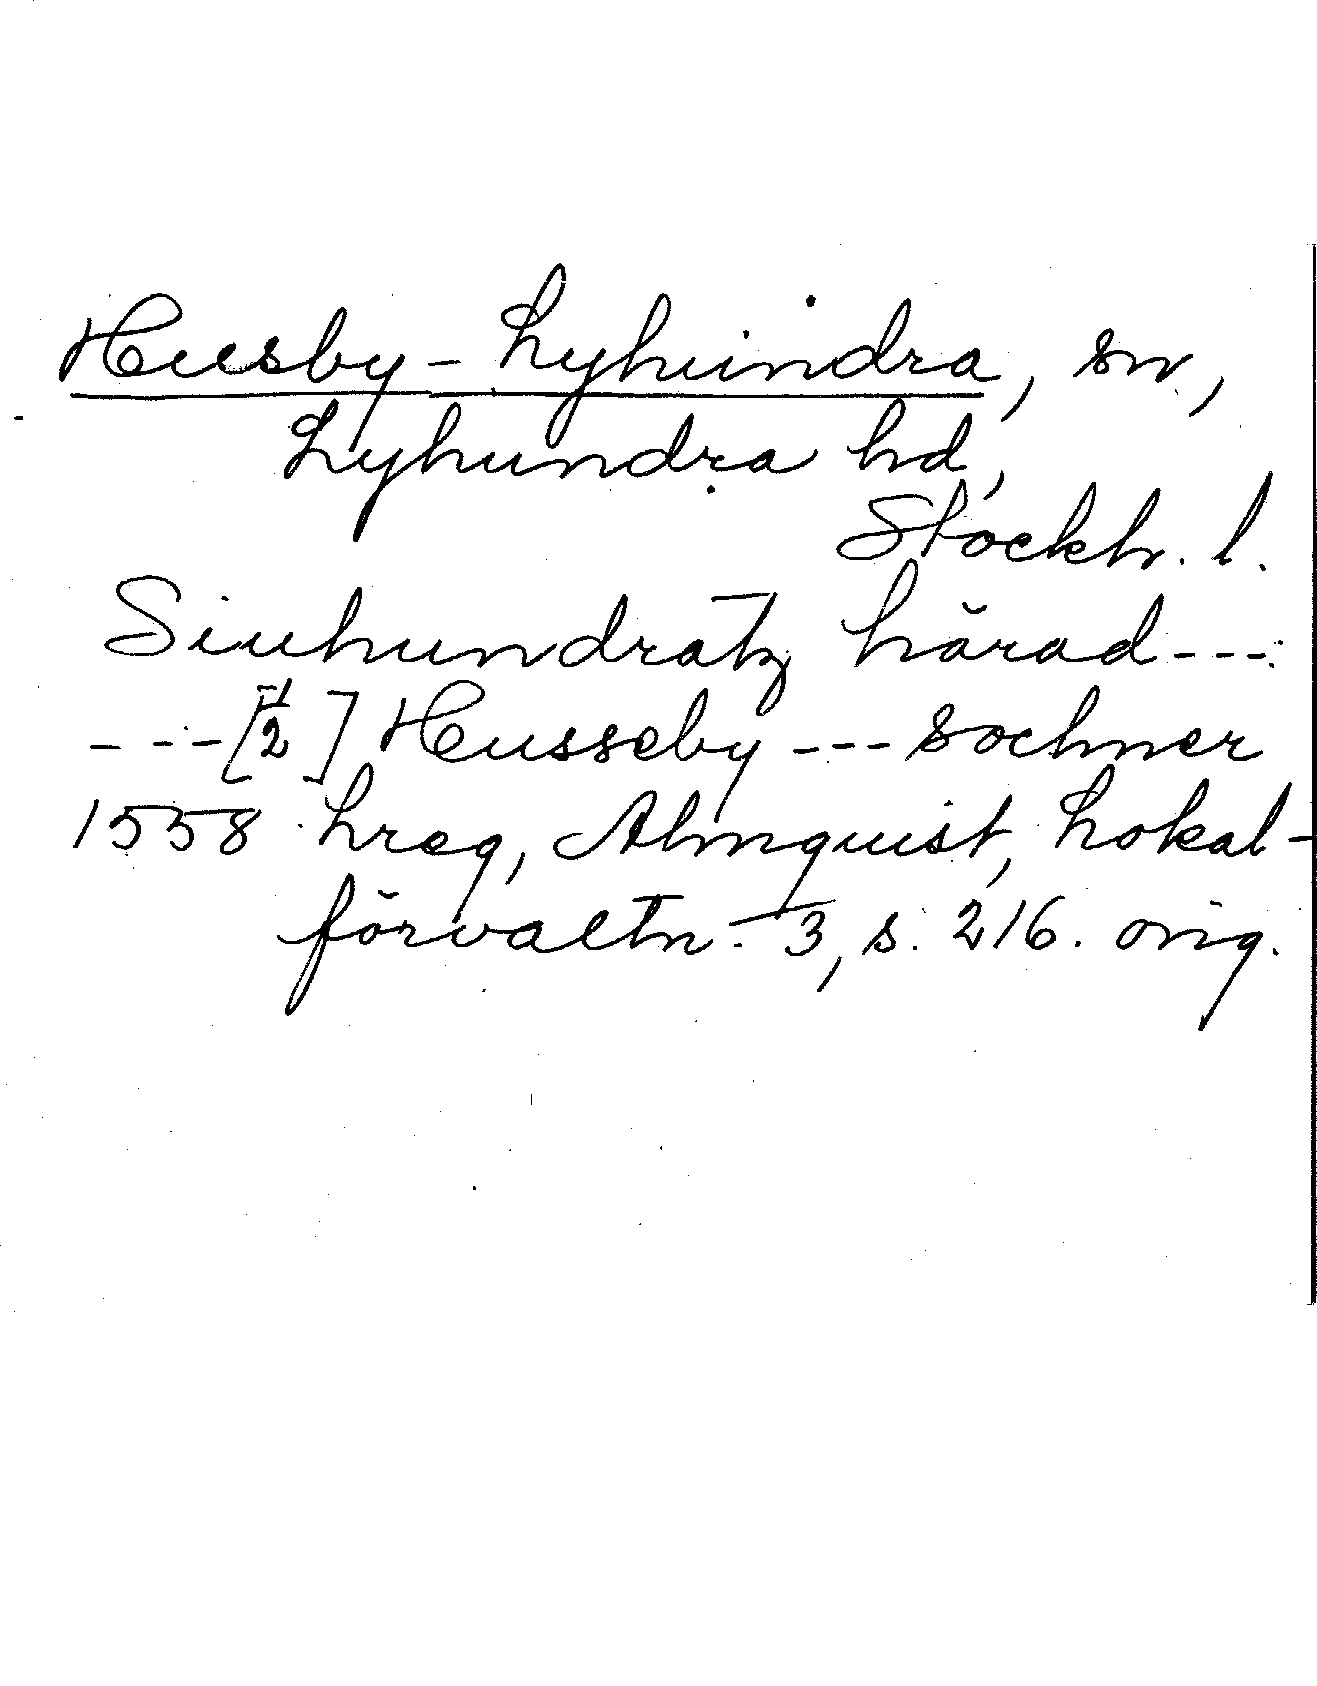 Husby-Lyhundra, sn,
Lyhundra hd,
Stockh. l.
Siuhundratz härad---
---[½] Husseby --- sochner
1558 Lreg, Almquist, Lokal-
förvaltn. 3, s. 216. orig.